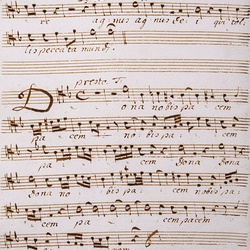 re agnus agnus dei qui tol
lis peccata mundi.
presto. T
Dona nobis pa
cem no bis pa cem
pa cem dona dona
dona no bis pa cem nobis pa
cem pa cem pacem